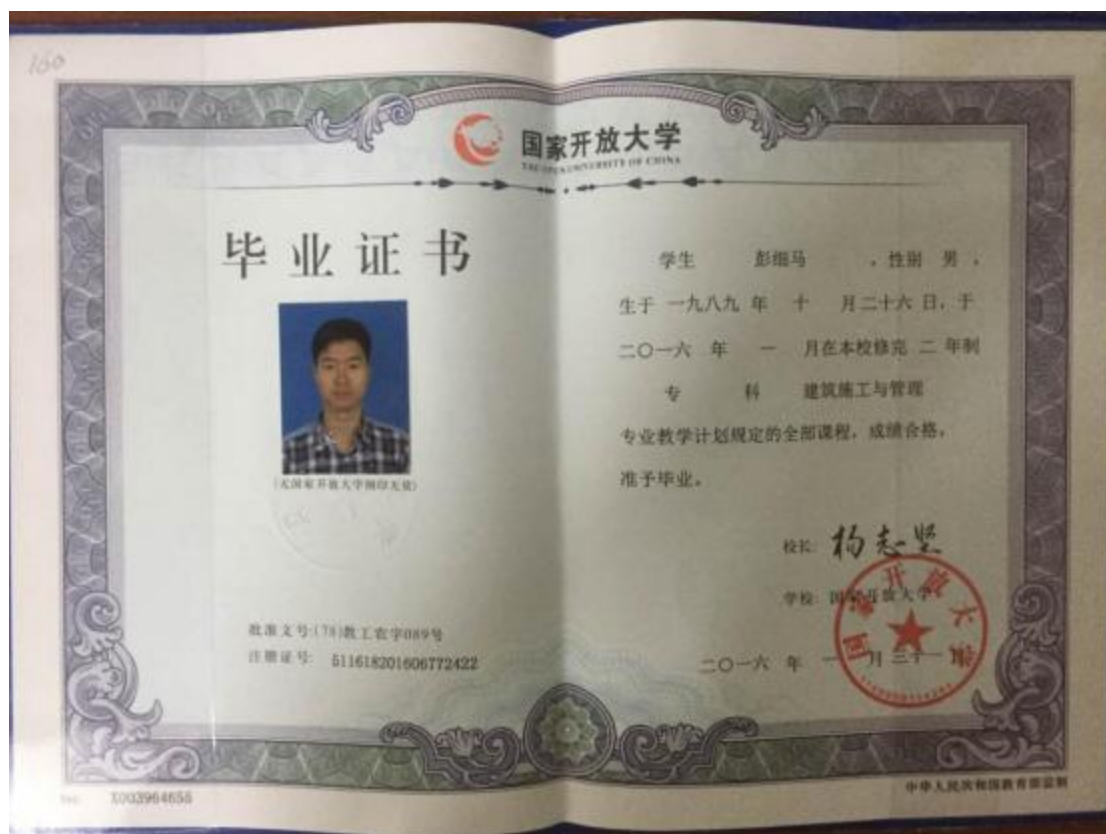 160
国家开放大学
THE OPEN UNIVERSITY OF CHINA
毕业证书
(无国家开放大学钢印无效)
批准文号:(78)教工农字089号
注册证号: 511618201606772422
学生 彭细马 ,性别 男 ,
生于 一九八九 年 十 月二十六 日,于
二〇一六 年 一 月在本校修完 二 年制
专 科 建筑施工与管理
专业教学计划规定的全部课程,成绩合格,
准予毕业。
校长: 杨志坚
学校: 国家开放大学
二〇一六 年 一 月三十一
国家开放大学
No. X003964655
中华人民共和国教育部监制